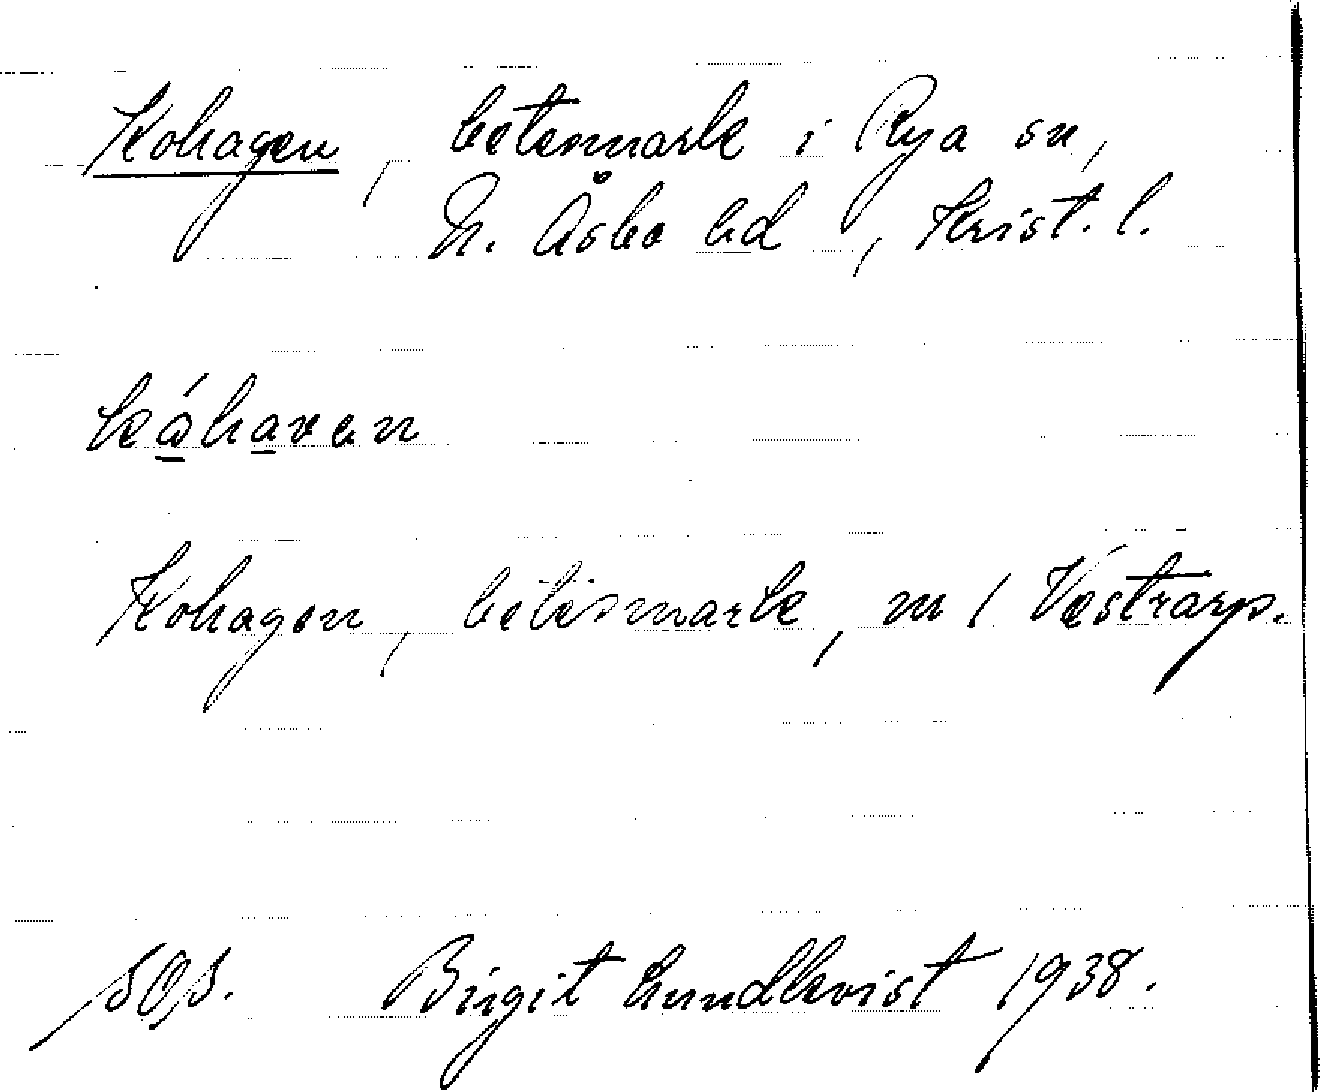 Kohagen, betesmark i Rya sn,
N. Åsbo hd, Krist. l.
kåhaven
Kohagen, betesmark, n / Västrarp.
Birgit Lundkvist 1938.